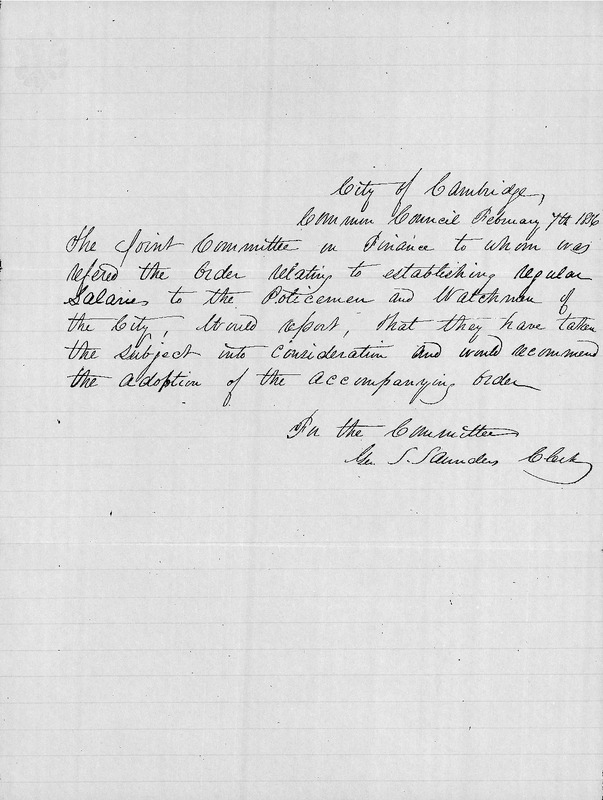 City of Cambridge,
Common Council February 7th 1856
The Joint Committee on Finance to whom was
refered the Order relating to establishing regular
Salaries to the Policemen and Watchmen of
the City, Would report, that they have taken
the subject into consideration and would recommend
the adoption of the accompanying Order
For the Committee
Geo S. Saunders Clerk